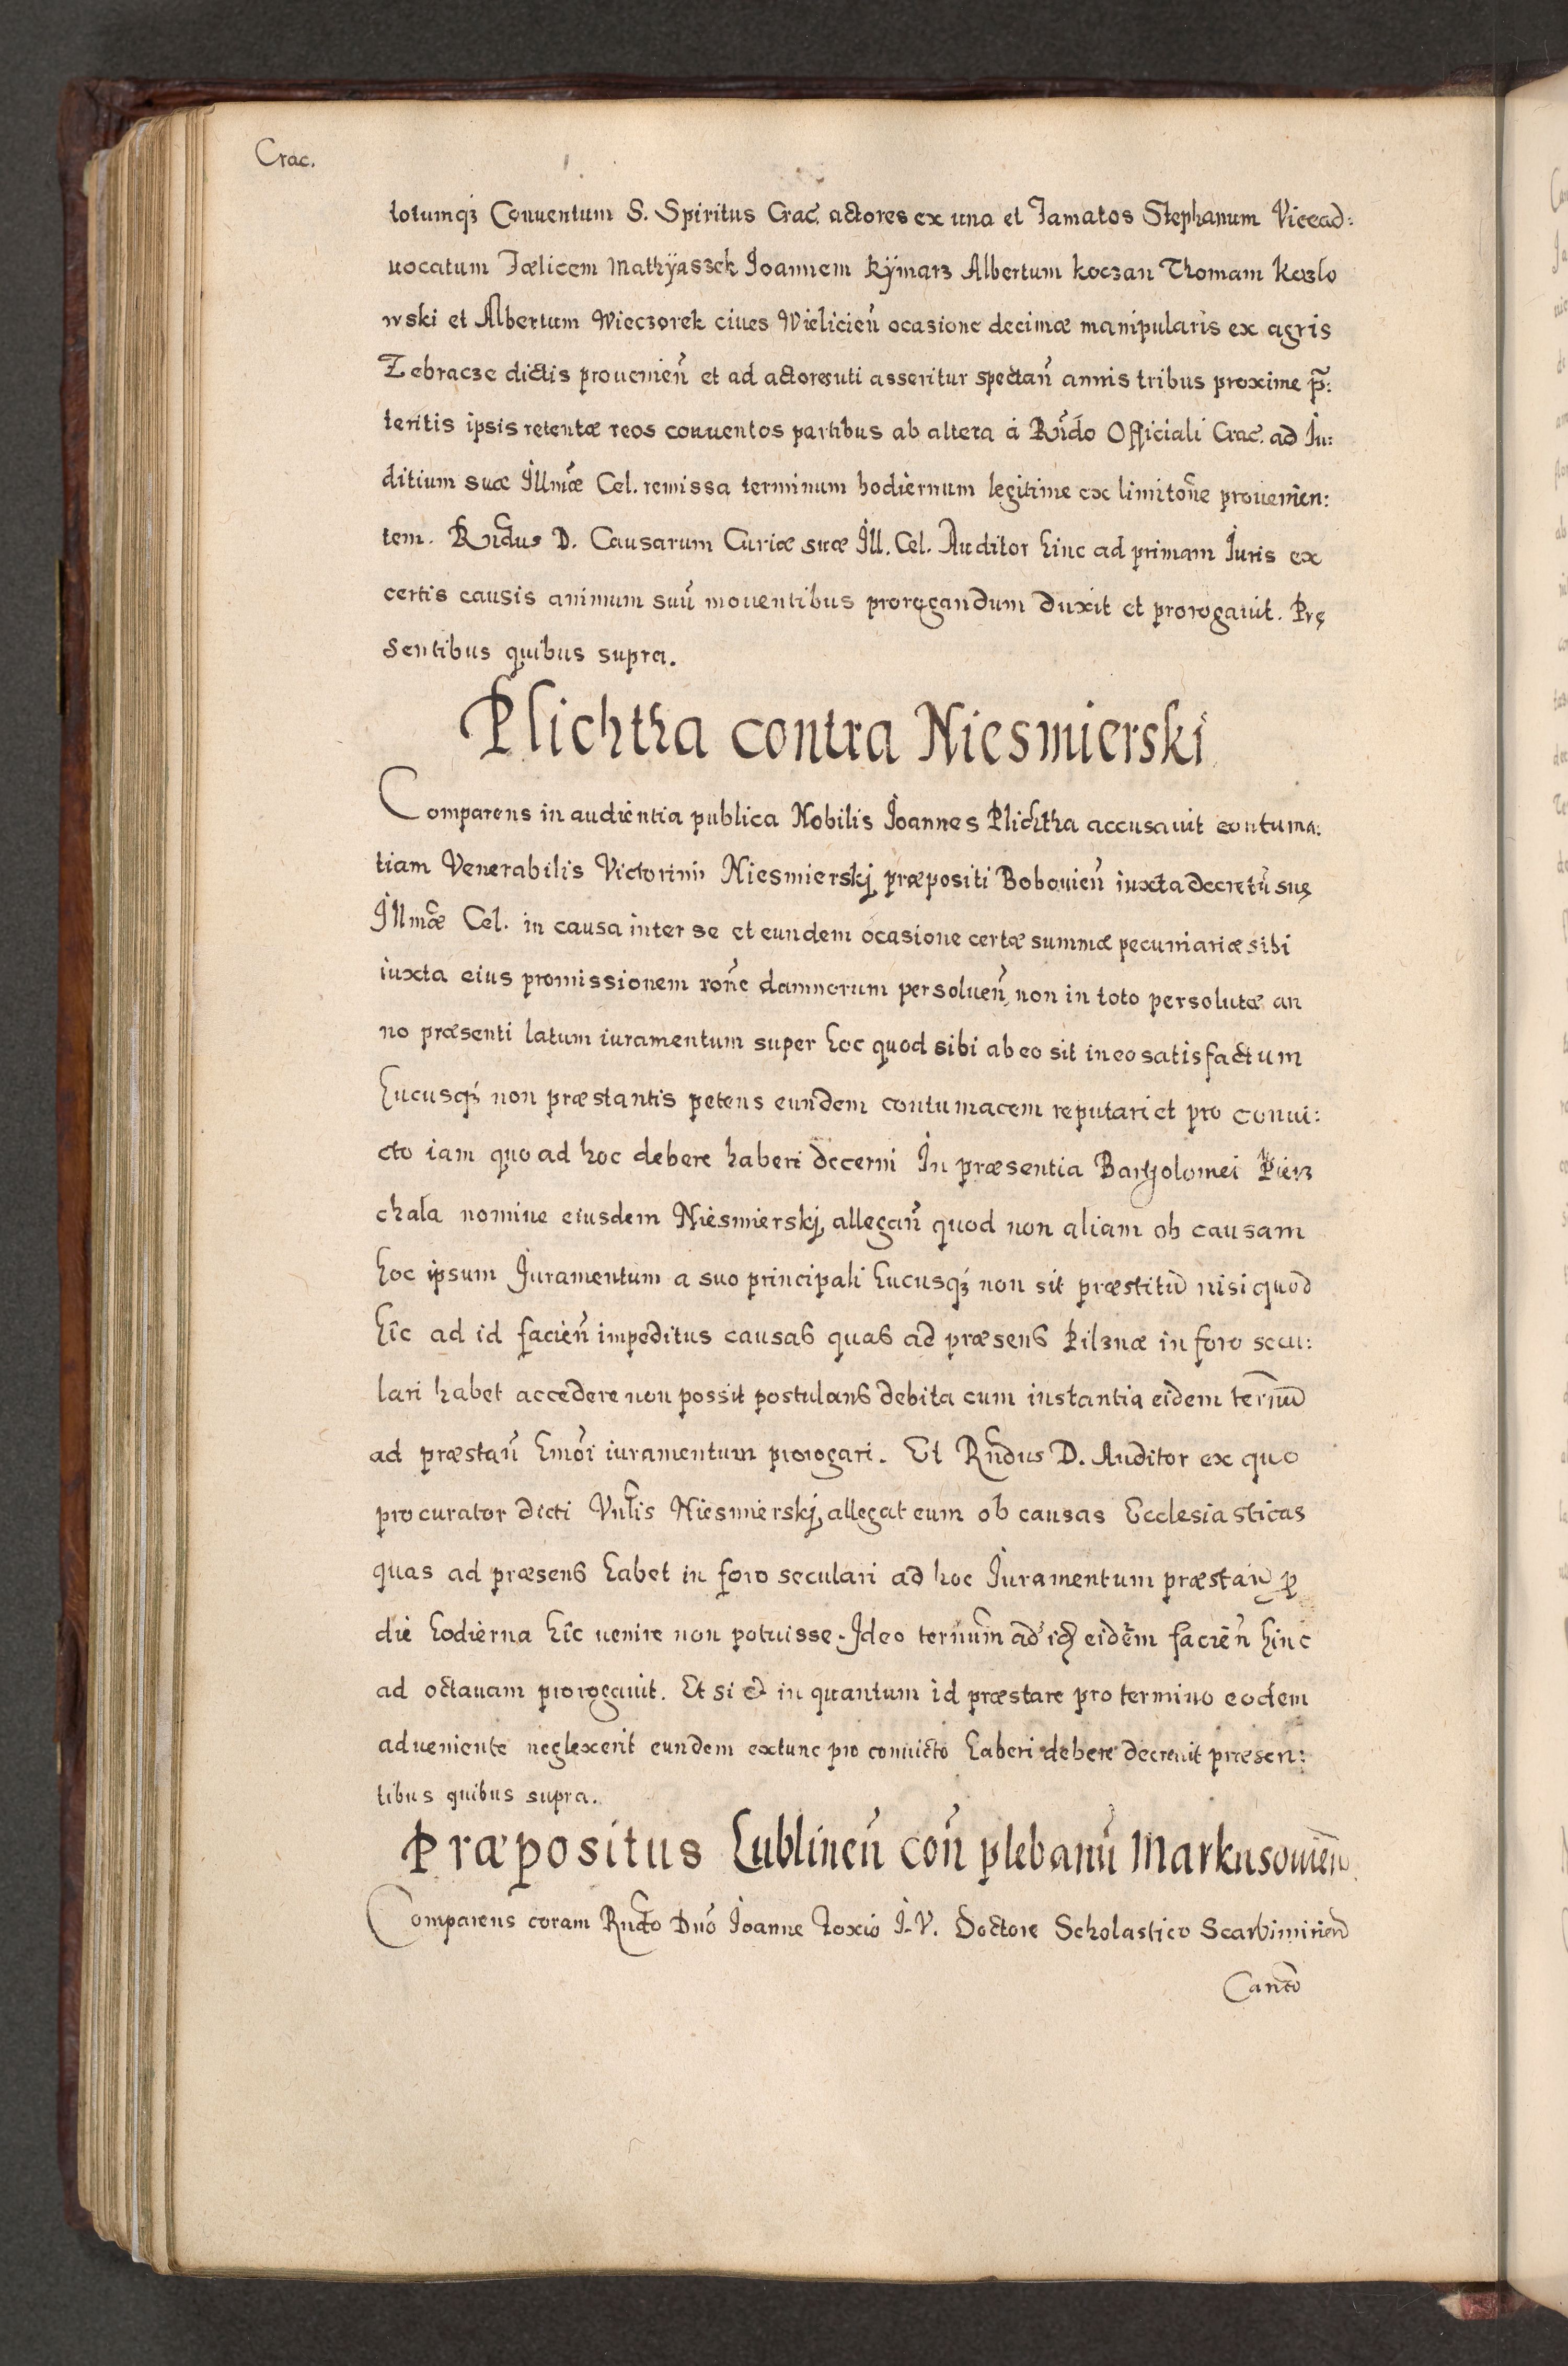 Crac.
totumq3 Conuentum S. Spiritus Crac. actores ex una et Famatos Stephanum Vicead:
uocatum Fælicem Mathÿaszek Ioannem Kÿmarz Albertum Koczan Thomam Kozlo
wski et Albertum Wieczorek ciues Wielicien̄ ocasione decimæ manipularis ex agris
Zebracze dictis prouenien̄ et ad actores uti asseritur spectan̄ annis tribus proxime p̄:
teritis ipsis retentæ reos conuentos partibus ab altera à Rn̄do Officiali Crac. ad Iu:
ditium suæ Illmæ Cel. remissa terminum hodiernum legitime ex limitōne prouenien:
tem. Rndus D. Causarum Curiæ suæ Ill. Cel. Auditor hinc ad primam Iuris ex
certis causis animum suū mouentibus prorogandum duxit et prorogauit. Prę
sentibus quibus supra.
Plichtha contra Niesmierski
Comparens in audientia publica Nobilis Ioannes Plichtha accusauit contuma:
tiam Venerabilis Victorini Niesmierskj præpositi Bobouien̄ iuxta decretū suę
Illmæ Cel. in causa inter se et eundem ocasione certæ summæ pecuniariæ sibi
iuxta eius promissionem rōne damnorum persoluen̄, non in toto persolutæ an
no præsenti latum iuramentum super hoc quod sibi ab eo sit in eo satisfactum
hucusq3 non præstantis petens eundem contumacem reputari et pro conui:
cto iam quo ad hoc debere haberi decerni In præsentia Bartholomei Pierz
chala nomine eiusdem Niesmierskj, allegan̄ quod non aliam ob causam
hoc ipsum Iuramentum a suo principali hucusq3 non sit præstitū nisi quod
hîc ad id facien̄ impeditus causas quas ad præsens Pilznæ in foro secu:
lari habet accedere non possit postulans debita cum instantia eidem termū
ad præstan̄ hmōi iuramentum prorogari. Et Rndus D. Auditor ex quo
procurator dicti Vnlis Niesmierskj, allegat eum ob causas Ecclesiasticas
quas ad præsens habet in foro seculari ad hoc Iuramentum præstan̄ p
die hodierna hîc uenire non potuisse. Ideo ternum ad id eidem facien̄ hinc
ad octauam prorogauit. Et si & in quantum id præstare pro termino eodem
adueniente neglexerit eundem extunc pro conuicto haberi debere decreuit præsen:
tibus quibus supra.
Præpositus Lublinen̄ con̄ plebanū Markusouien̄
Comparens coram Rndo Dnō Ioanne Foxio I. V. Doctore Scholastico Scarbimirien̄
Cancto